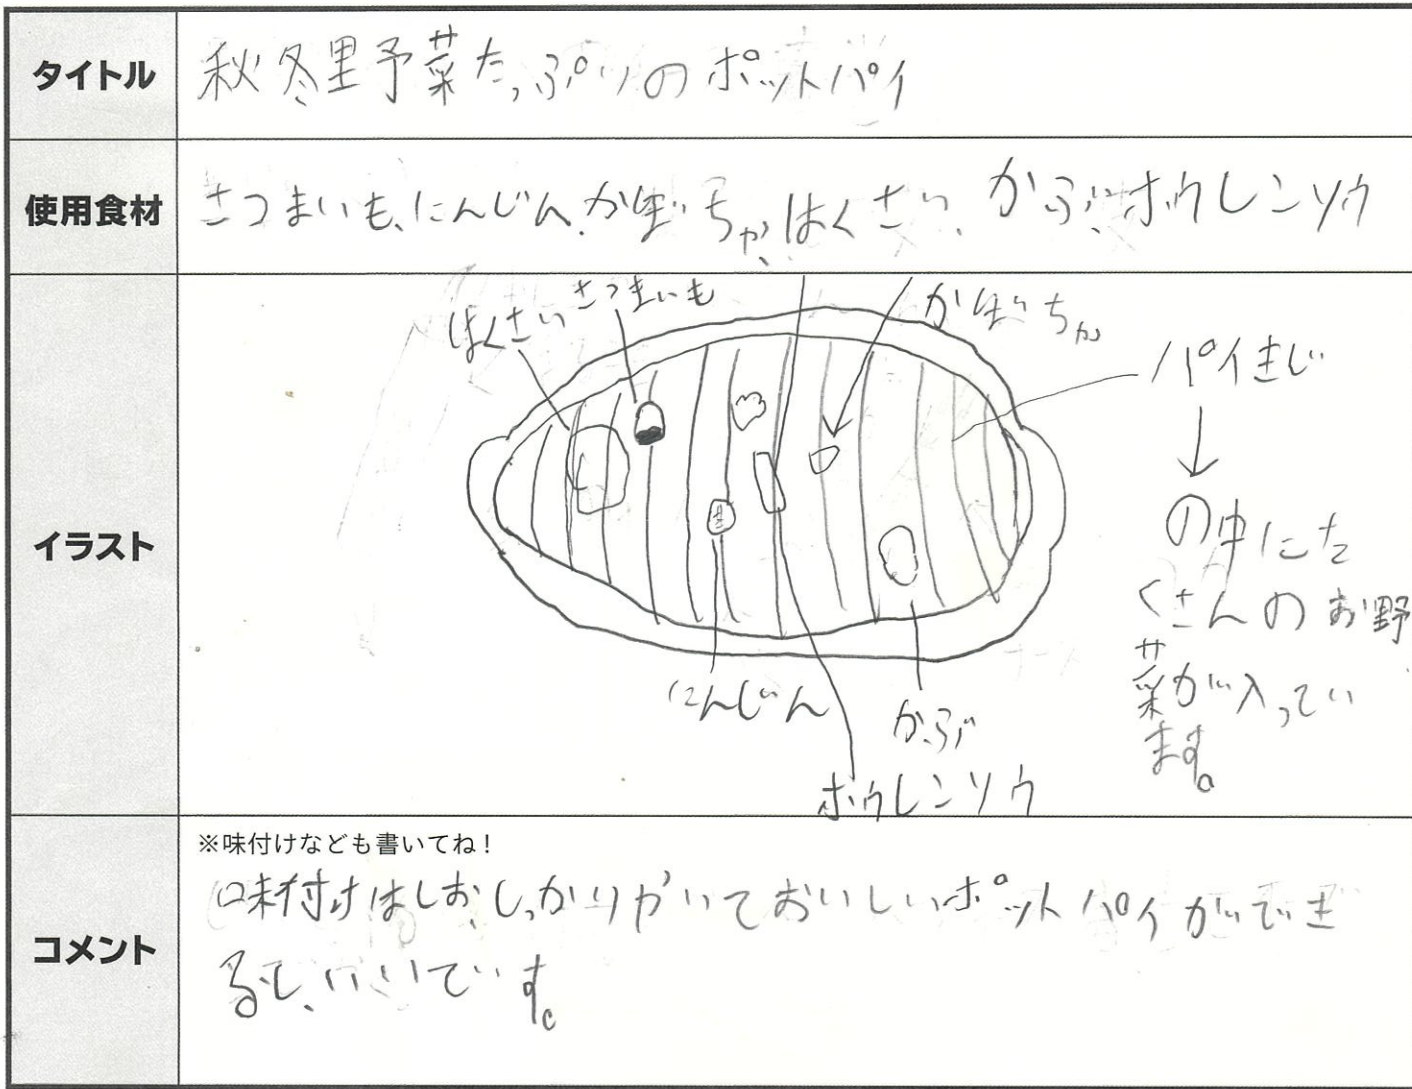 タイトル
秋冬野菜たっぷりのポットパイ
使用食材
さつまいも、にんじん、かぼちゃ、はくさい、かぶ、ホウレンソウ
イラスト
はくさい
さつまいも
かぼちゃ
パイきじ
↓
の中にた
くさんのお野
菜が入ってい
ます。
にんじん
かぶ
ホウレンソウ
コメント
※味付けなども書いてね！
味付けはしお、しっかり
ておいしいポットパイができ
るといいです。